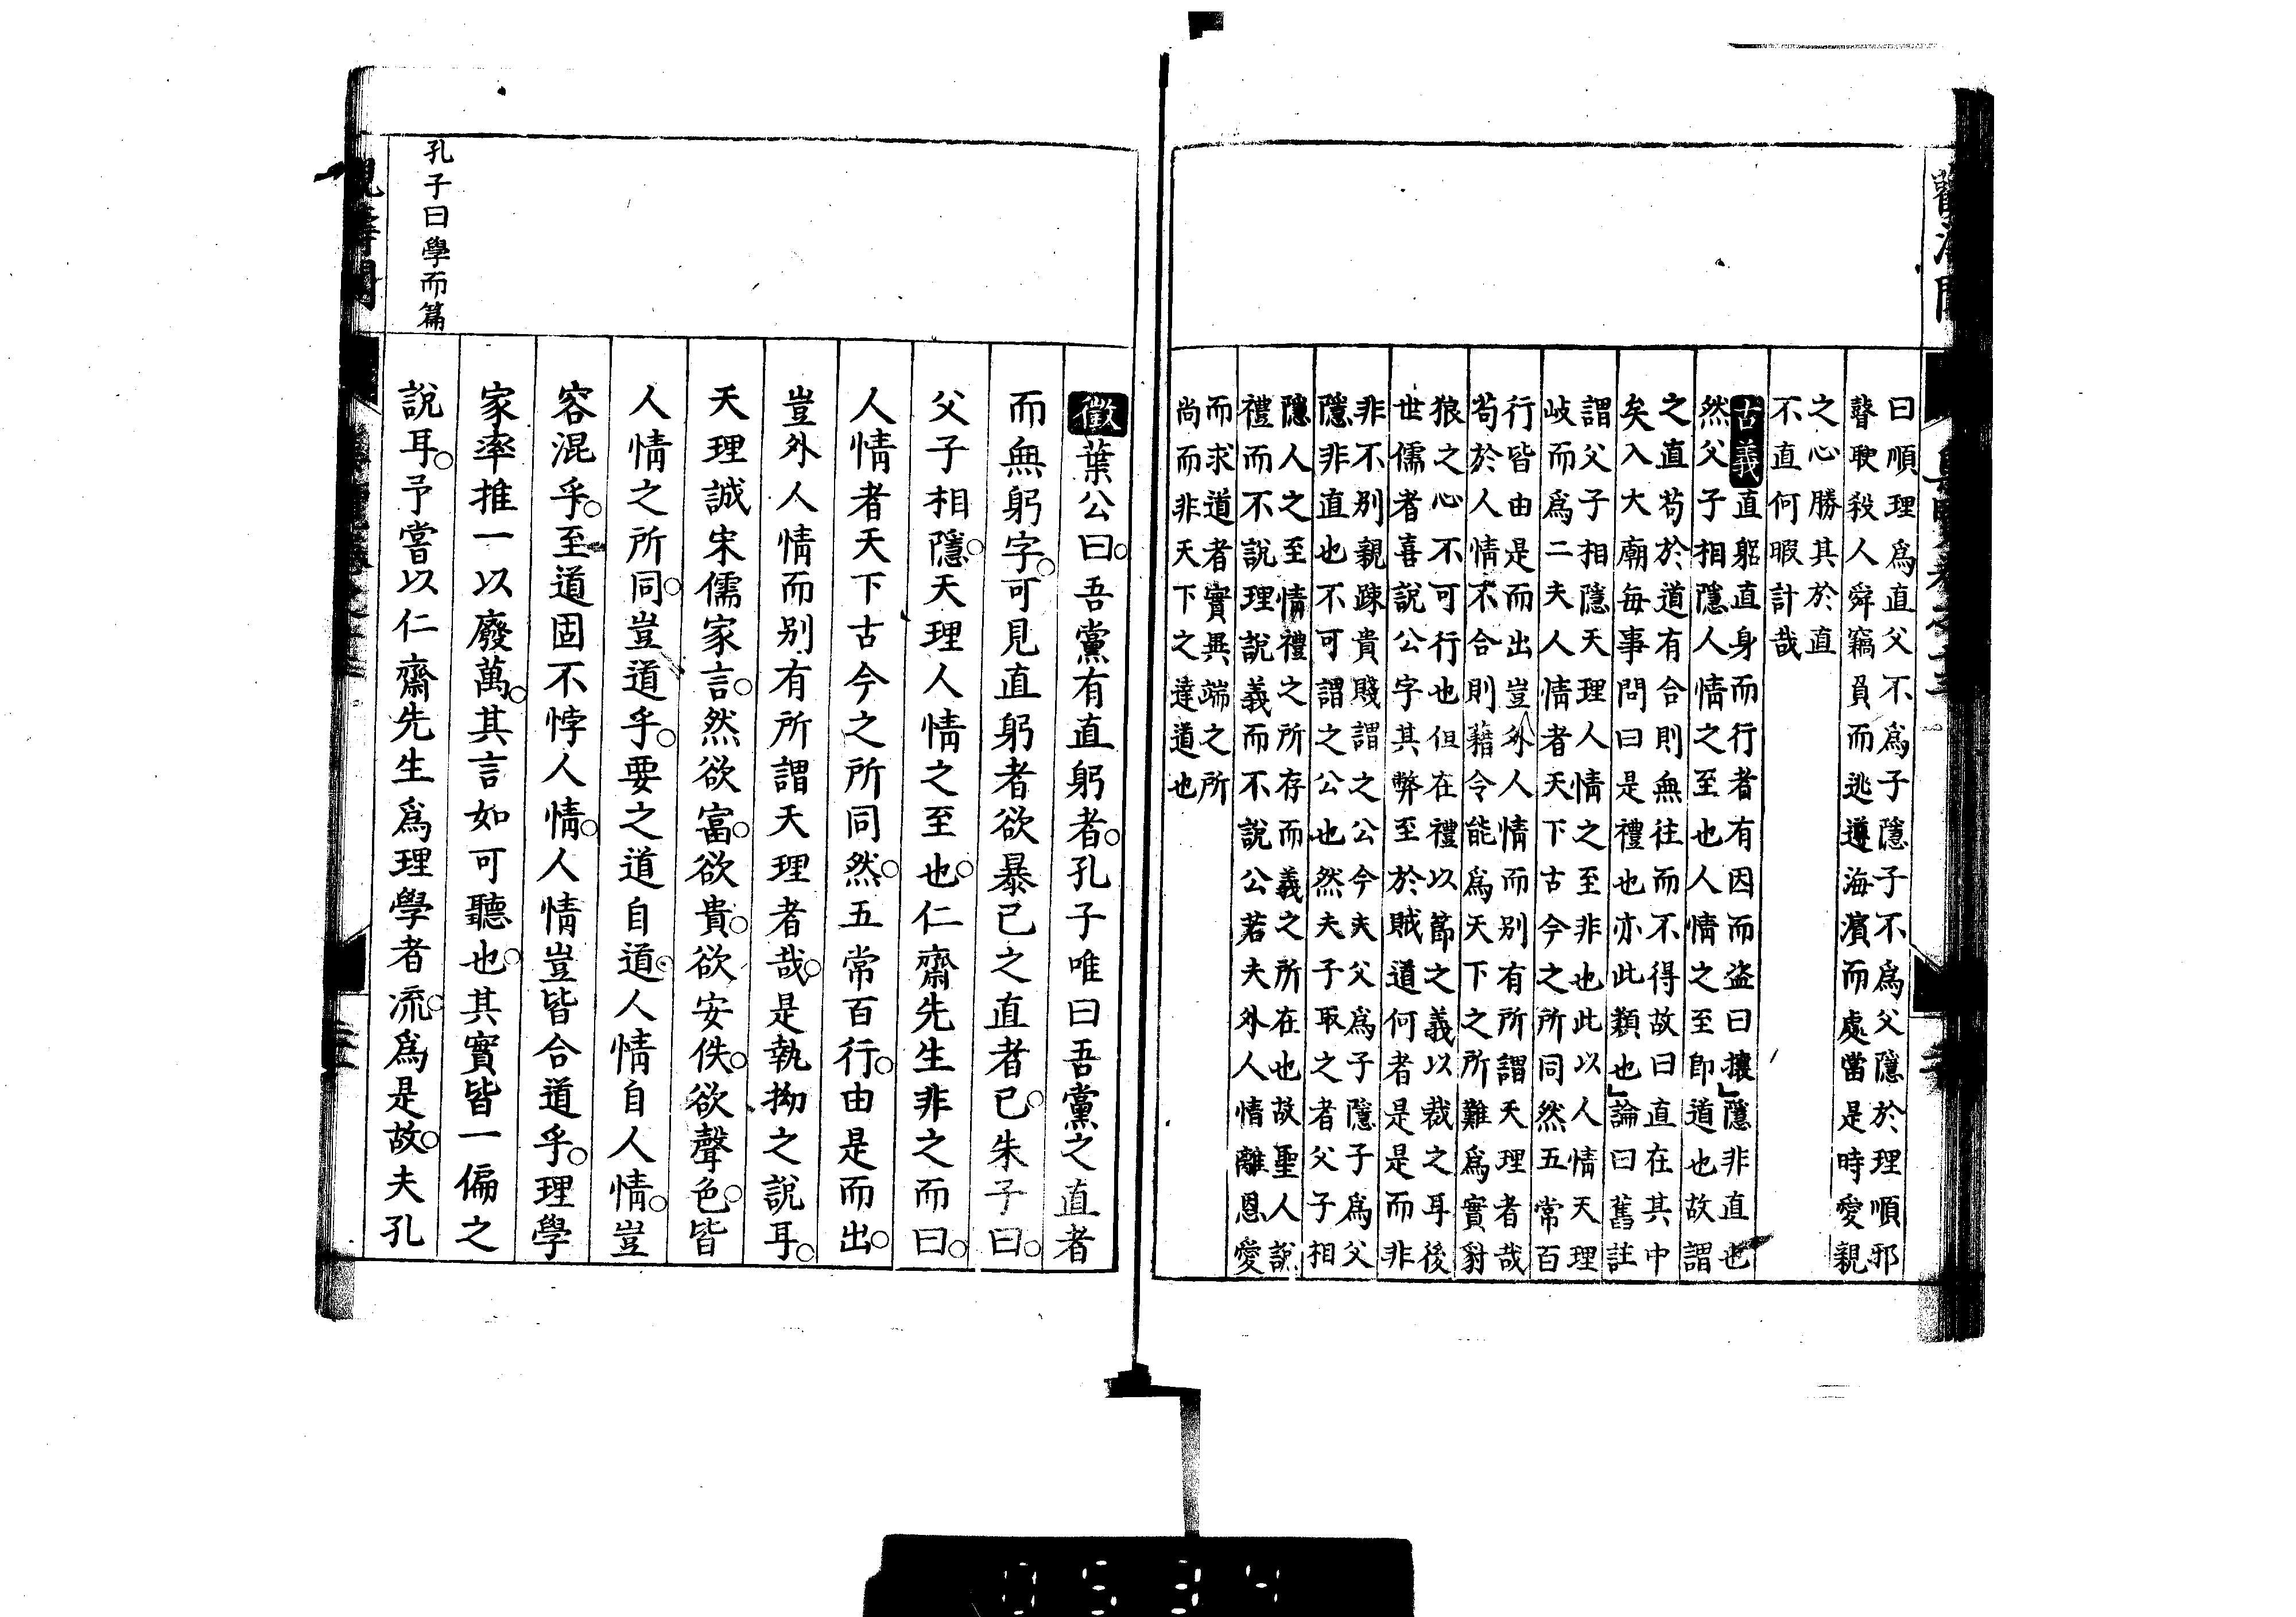 曰順理爲直父不爲子隱子不爲父隱於理順邪
瞽瞍殺人舜竊負而逃遵海濱而處當是時愛親
之心勝其於直
不直何暇計哉
古義直躬直身而行者有因而盜曰攘」隱非直也
然父子相隱人情之至也人情之至即道也故謂
之直苟於道有合則無往而不得故曰直在其中
矣入大廟每事問曰是禮也亦此類也」論曰舊註
謂父子相隱天理人情之至非也此以人情天理
岐而爲二夫人情者天下古今之所同然五常百
行皆由是而出豈外人情而別有所謂天理者哉
苟於人情不合則藉令能爲天下之所難爲實豺
狼之心不可行也但在禮以節之義以裁之耳後
世儒者喜說公字其弊至於賊道何者是是而非
非不別親踈貴賤謂之公今夫父爲子隱子爲父
隱非直也不可謂之公也然夫子取之者父子相
隱人之至情禮之所存而義之所在也故聖人說
禮而不說理說義而不說公若夫外人情離恩愛
而求道者實異端之所
尚而非天下之達道也
徵葉公曰。吾黨有直躬者。孔子唯曰吾黨之直者
而無躬字。可見直躬者欲暴己之直者已。朱子曰。
父子相隱。天理人情之至也。仁齋先生非之而曰。
人情者天下古今之所同然。五常百行。由是而出。
豈外人情而別有所謂天理者哉。是執拗之說耳。
天理誠宋儒家言。然欲富。欲貴。欲安佚。欲聲色。皆
人情之所同。豈道乎。要之道自道。人情自人情。豈
容混乎。至道固不悖人情。人情豈皆合道乎。理學
家率推一以廢萬。其言如可聽也。其實皆一偏之
說耳。予嘗以仁齋先生爲理學者流。爲是故。夫孔
孔子曰學而篇
0534